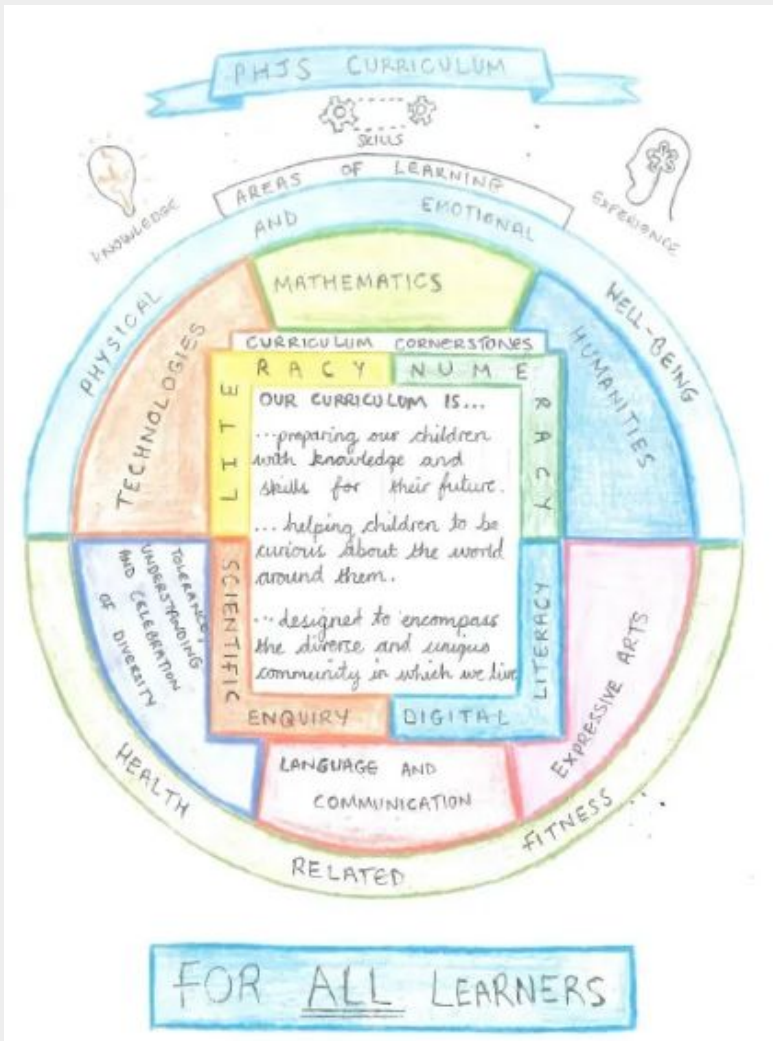 PHJS CURRICULUM
SKILLS
KNOWLEDGE
EXPERIENCE
AREAS OF LEARNING
PHYSICAL AND EMOTIONAL WELL-BEING
MATHEMATICS
TECHNOLOGIES
HUMANITIES
CURRICULUM CORNERSTONES
LITERACY
NUMERACY
OUR CURRICULUM IS...
...preparing our children
with knowledge and
skills for their future.
... helping children to be
curious about the world
around them.
... designed to encompass
the diverse and unique
community in which we live
SCIENTIFIC
ENQUIRY
DIGITAL
LITERACY
TOLERANCE,
UNDERSTANDING
AND CELEBRATION
OF DIVERSITY
EXPRESSIVE ARTS
LANGUAGE AND
COMMUNICATION
HEALTH RELATED FITNESS
FOR ALL LEARNERS